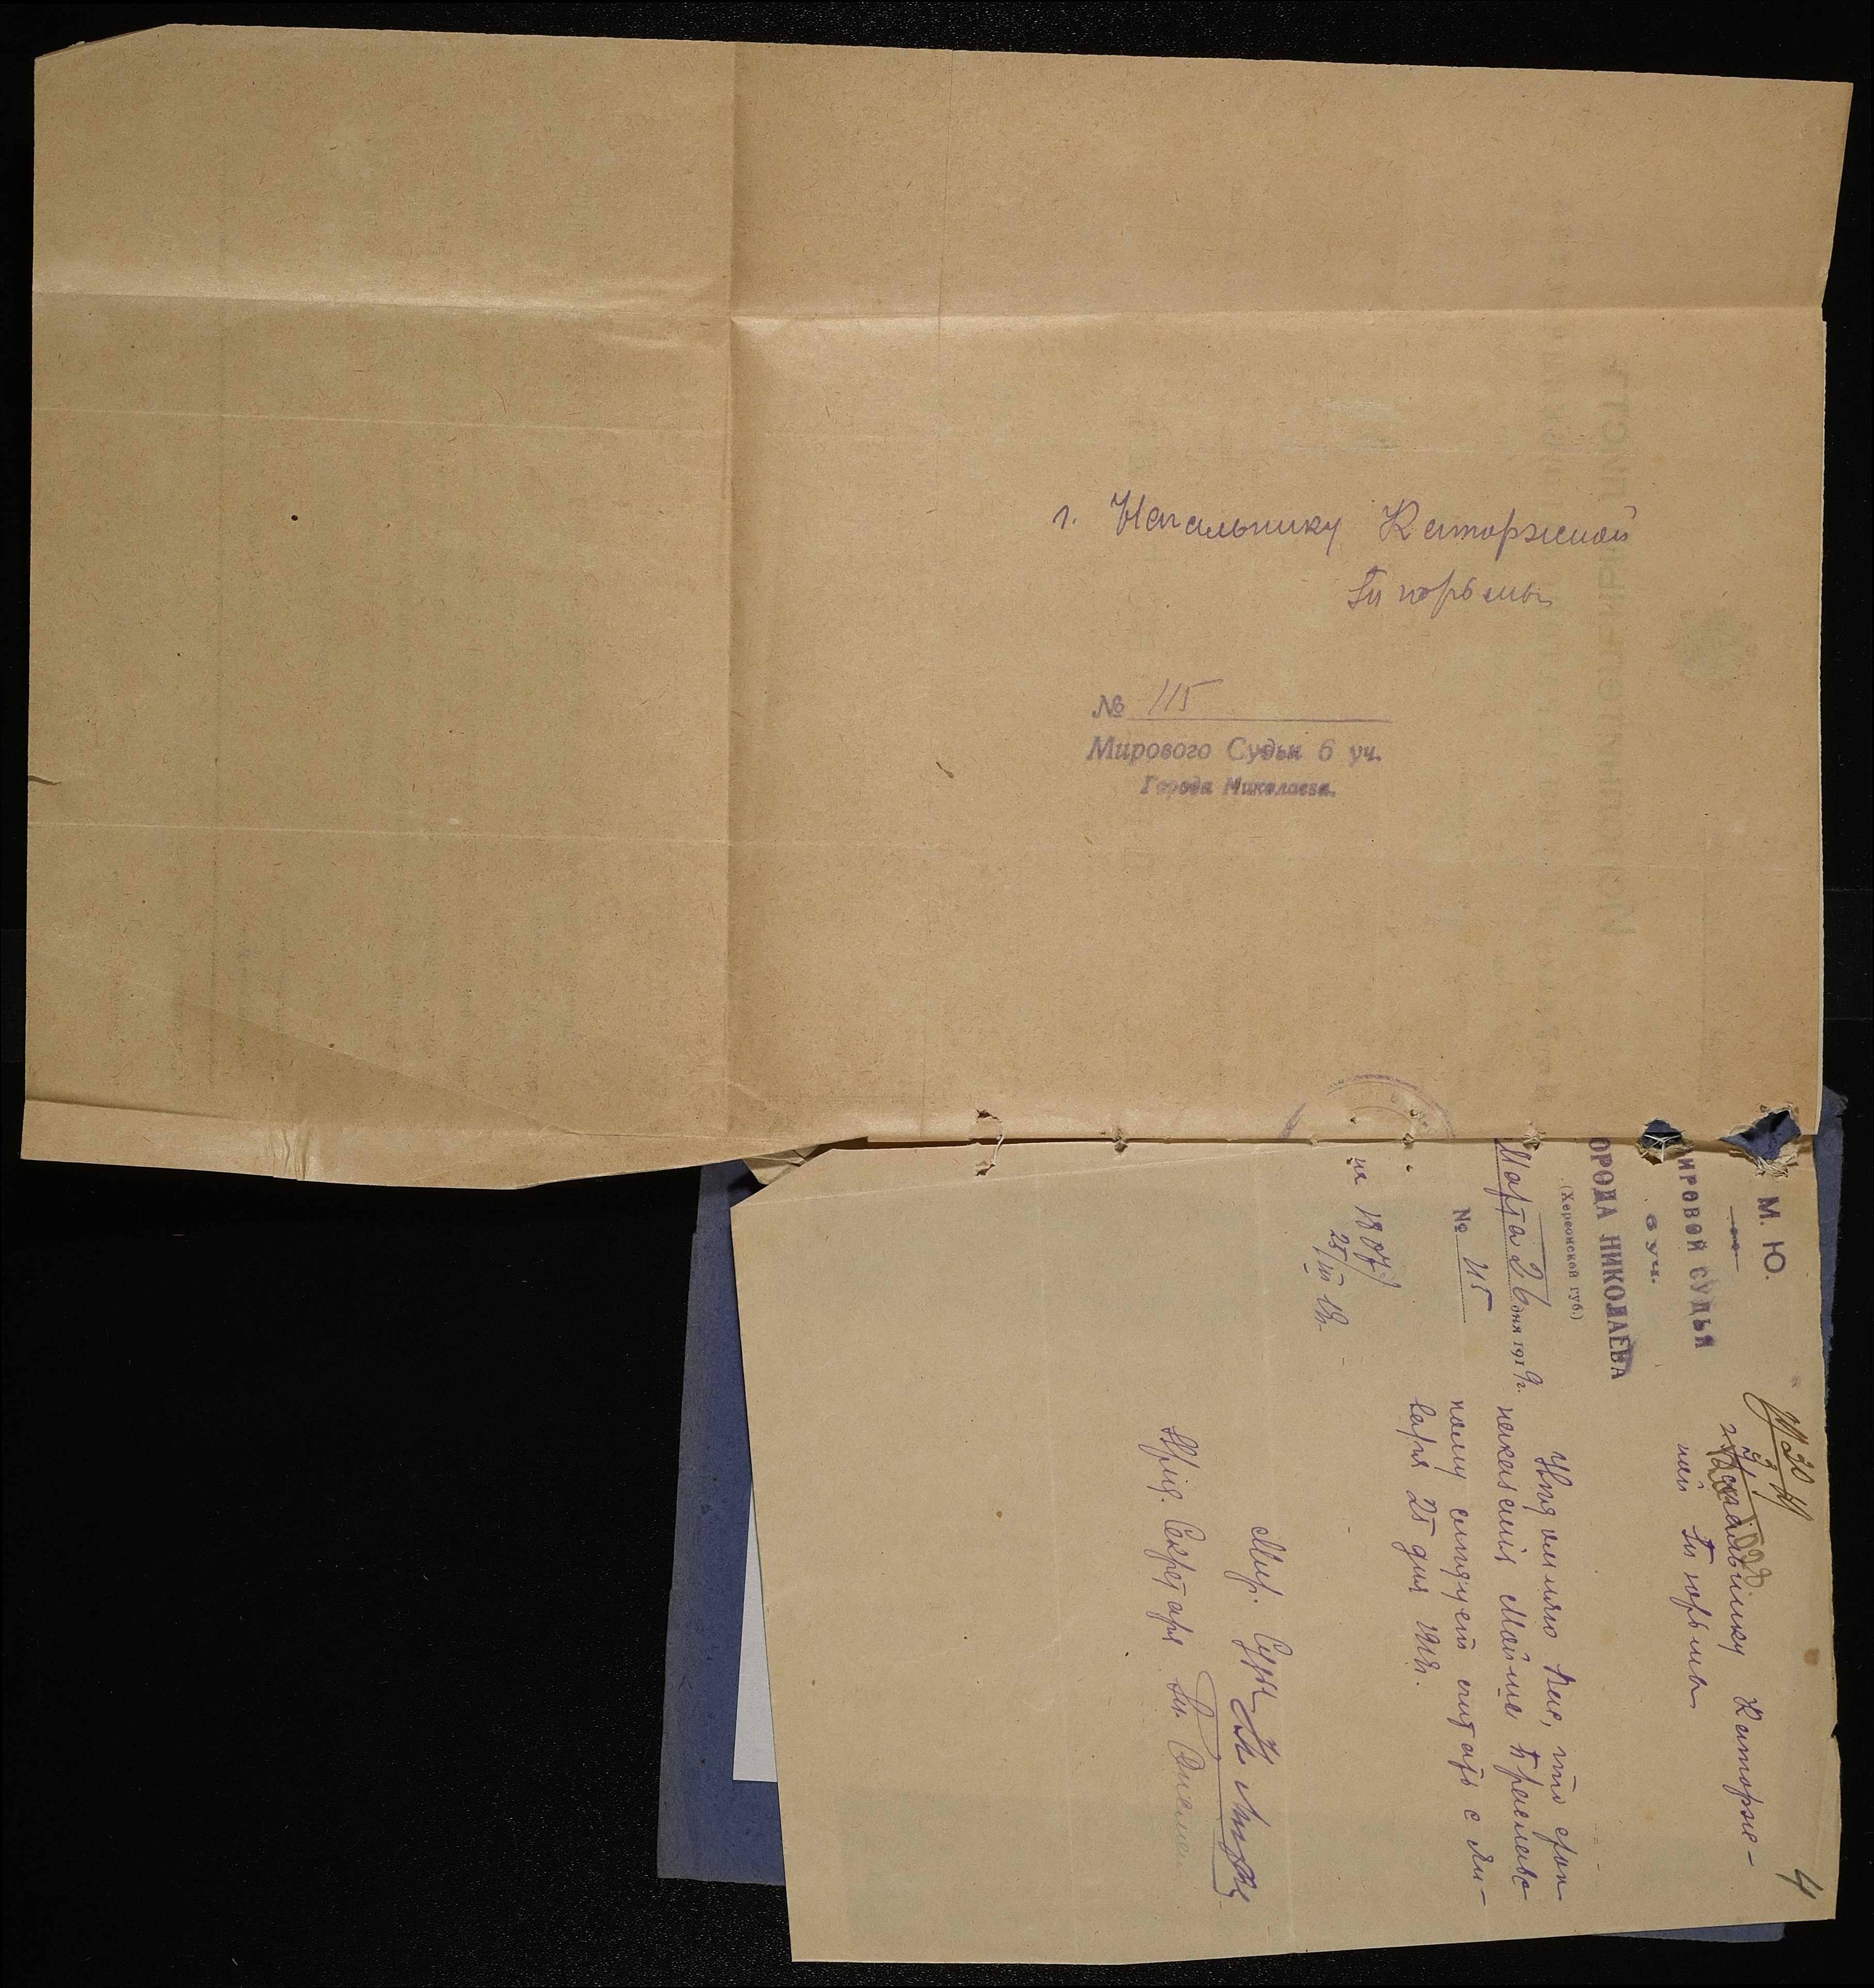 г. Начальнику Каторжной
Тюрьмы
№ 115
Мирового Судьи 6 уч.
Города Николаева.
М. Ю.
ИРОВОЙ СУДЬЯ
6 уч.
ОРОДА НИКОЛАЕВА
(Херсонской губ.)
Марта 26 дня 1919 г.
№ 115
на 1807
25/III 19 г.
4
г. Начальнику Каторж-
ной Тюрьмы
Уведомляю Вас, что срок
наказания
кому следует считать с Ян-
варя 25 дня 1919 г.
Мир. Судья
Секретарь